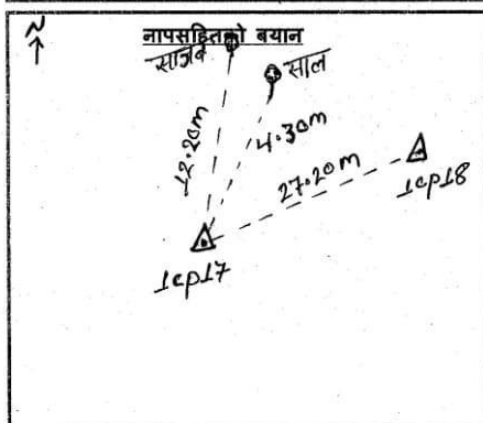 N
नापसहितको बयान
साल
12.20m
4.30m
27.20m
1cp18
1cp17